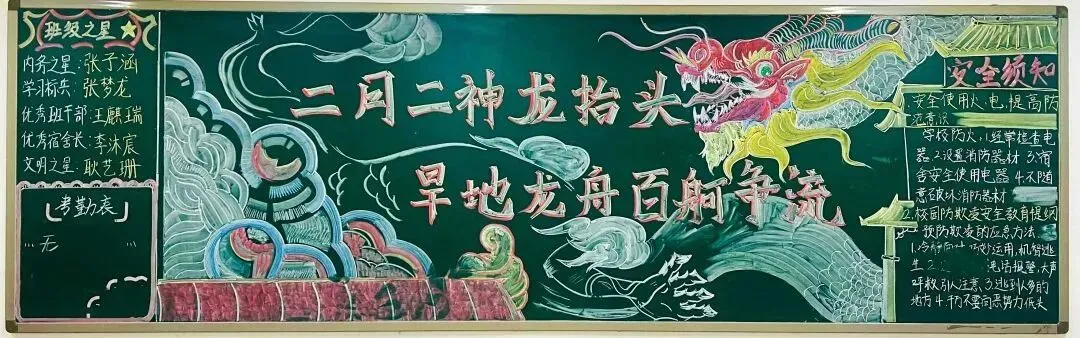 班级之星
内务之星:张子涵
学习标兵:张梦龙
优秀班干部:王麒瑞
优秀宿舍长:李沐宸
文明之星:耿艺珊
考勤表
无
二月二神龙抬头
旱地龙舟百舸争流
安全须知
安全使用火电,提高防
范意识
学校防火,1经常检查电
器 2.设置消防器材 3.宿
舍安全使用电器 4.不随
意破坏消防器材
2.校园防欺凌安全教育提纲
预防欺凌的应急方法
1.冷静面对 巧妙运用,机智逃
生 2. 电话报警,大声
呼救引人注意 3.逃到人多的
地方 4.千万不要向恶势力低头